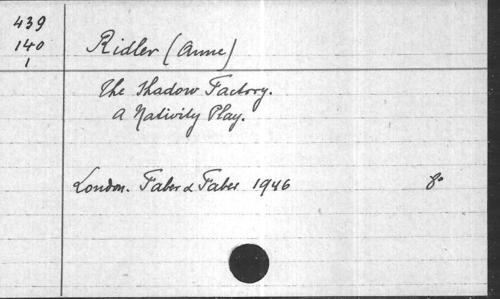 439
140
1
Ridler (Anne)
The Shadow Factory.
A Nativity Play.
London. Faber & Faber 1946 8º